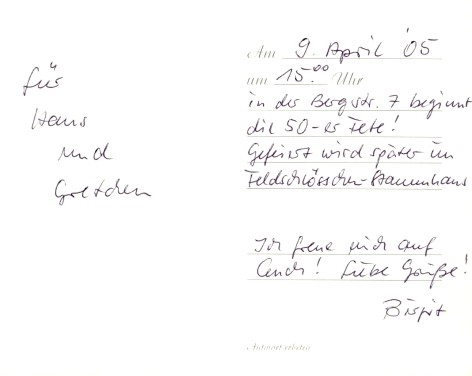 für
Hans
und
Gretchen
Am 9. April '05
um 15.00 Uhr
in der Bergstr. 7 beginnt
die 50-er Fete!
Gefeiert wird später im
Feldschlösschen-Stammhaus
Ich freue mich auf
Euch! Liebe Grüße!
Birgit
Antwort erbeten